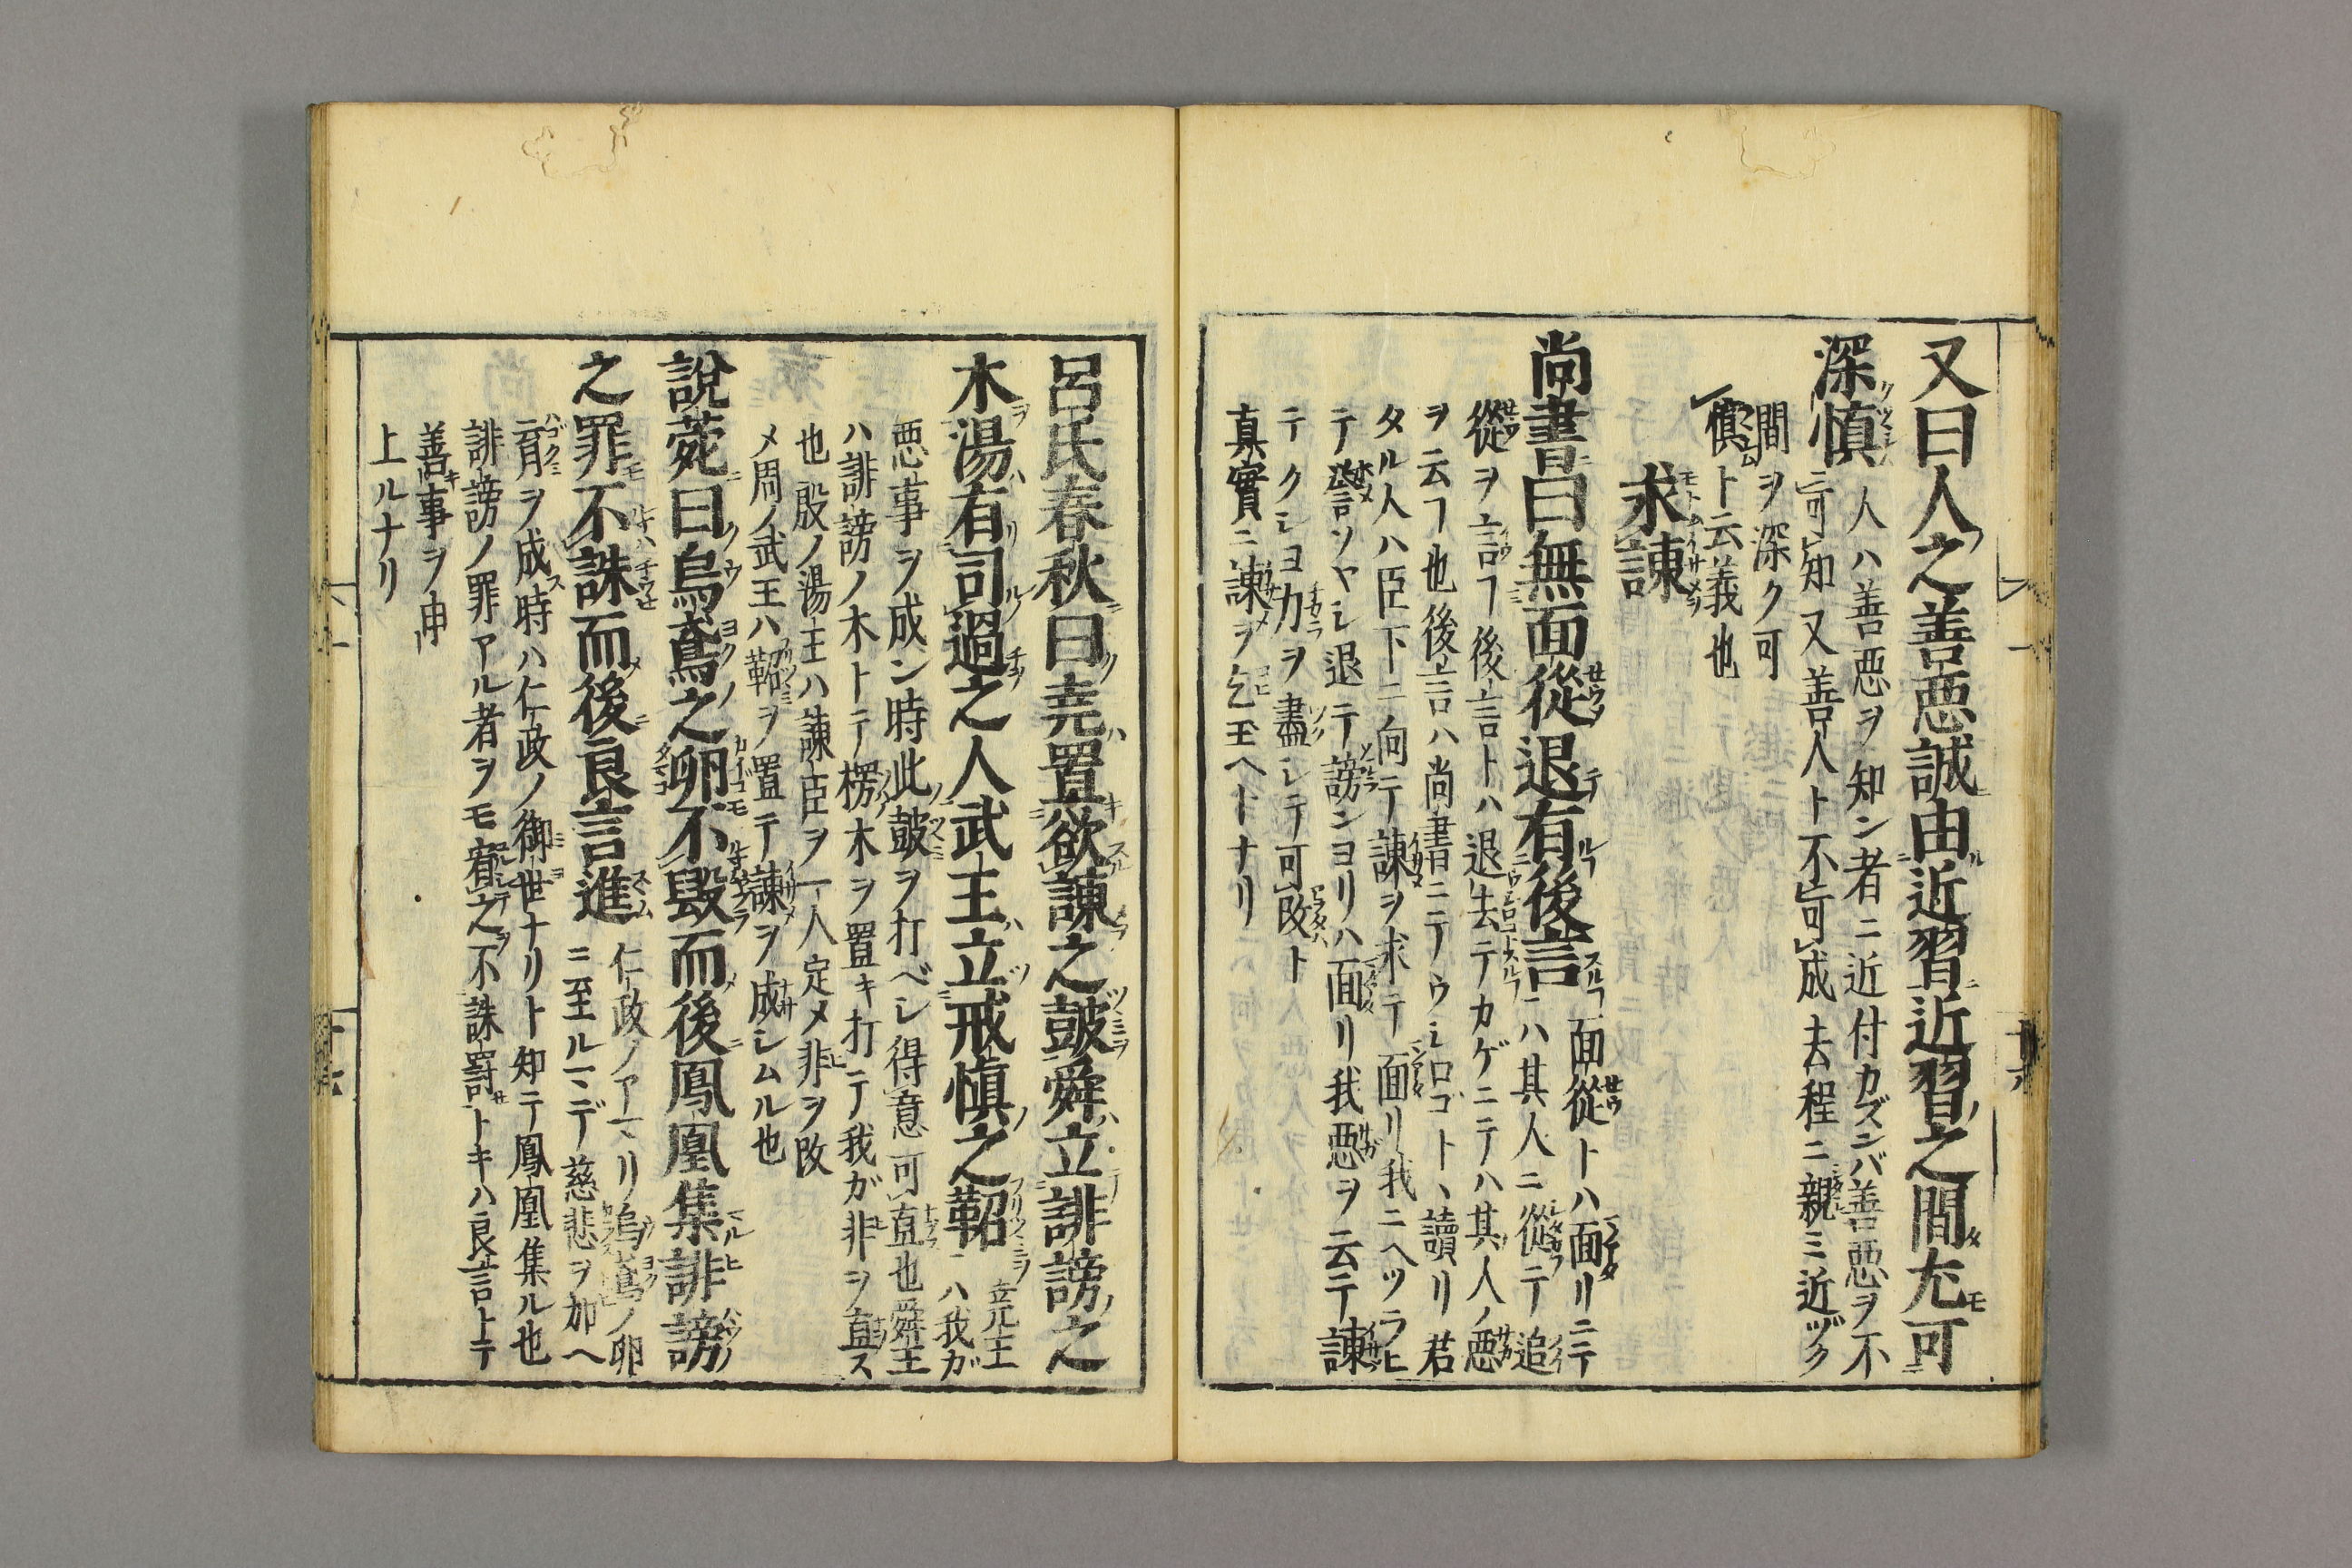 又曰人之善惡誠由近習近習之間尤可
深慎 人ハ善惡ヲ知ン者ニ近付カズンバ善惡ヲ不
可知又善人ト不可成去程ニ親ミ近ヅク
間ヲ深ク可
慎ト云義也
求諌
尚書曰無面從退有後言 面從トハ面リニテ
ハ其人ニ從テ追
從ヲ言フ後言トハ退去テカゲニテハ其人ノ惡
ヲ云フ也後言ハ尚書ニテウシロゴトヽ讀リ君
タル人ハ臣下ニ向テ諌ヲ求テ面リ我ニヘツラヒ
テ譽ソヤシ退テ謗ンヨリハ面リ我惡ヲ云テ諌
テクレヨ力ヲ盡シテ可改ト
真實ニ諌ヲ乞玉ヘトナリ
呂氏春秋曰尭置欲諌之皷舜立誹謗之
木湯有司過之人武王立戒愼之鞀 尭王
ハ我ガ
惡事ヲ成ン時此皷ヲ打ベシ得意可直也舜王
ハ誹謗ノ木トテ楞木ヲ置キ打テ我ガ非ヲ直ス
也殷ノ湯王ハ諌臣ヲ一人定メ非ヲ改
メ周ノ武王ハ鞀ヲ置テ諌ヲ成シムル也
說菀曰烏鳶之卵不毀而後鳳凰集誹謗
之罪不誅而後良言進 仁政ノアマリ烏鳶ノ卵
ニ至ルマデ慈悲ヲ加ヘ
育ヲ成時ハ仁政ノ御世ナリト知テ鳳凰集ル也
誹謗ノ罪アル者ヲモ宥之不誅罰トキハ良言トテ
善事ヲ申
上ルナリ